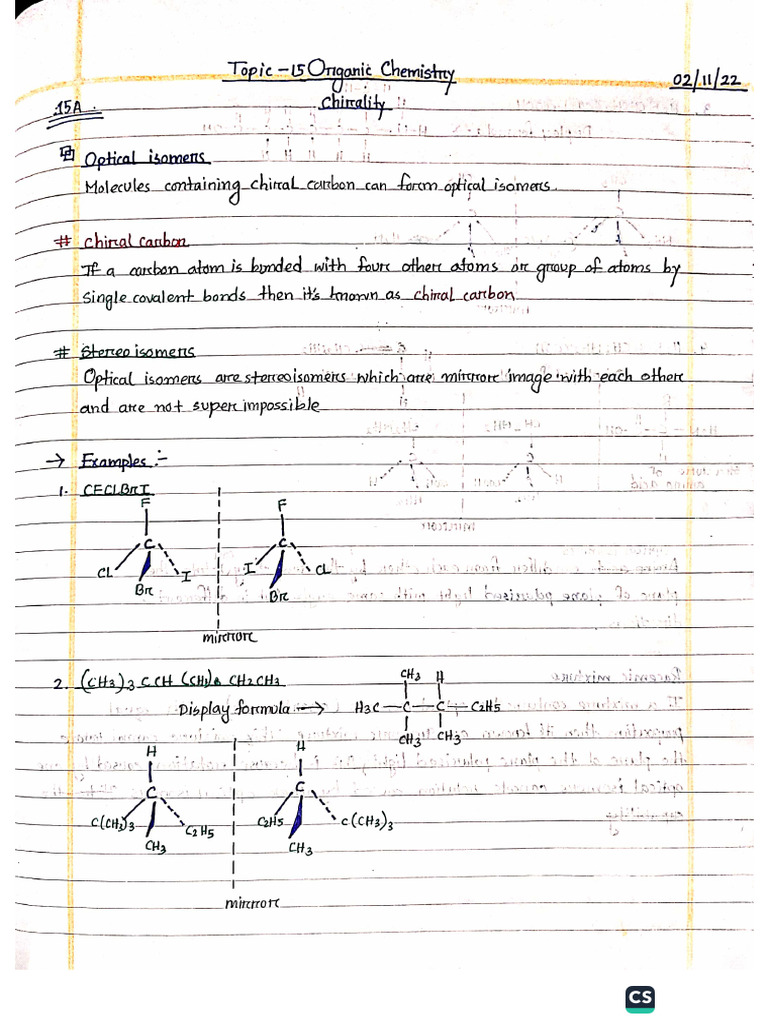 Topic - 15 Organic Chemistry
02/11/22
Chirality
15A.
Optical isomers
Molecules containing chiral carbon can form optical isomers.
# Chiral carbon
If a carbon atom is bonded with four other atoms or group of atoms by
single covalent bonds then it's known as chiral carbon.
# Stereo isomers
Optical isomers are stereoisomers which are mirror image with each other
and are not super impossible
→ Examples :-
1. CFClBrI
F F
C C
Cl I I Cl
Br Br
mirror
2. (CH3)3 C CH (CH3) CH2CH3
CH3 H
Display formula → H3C—C—C—C2H5
CH3 CH3
H H
C C
C(CH3)3 C2H5 C2H5 C(CH3)3
CH3 CH3
mirror
CS